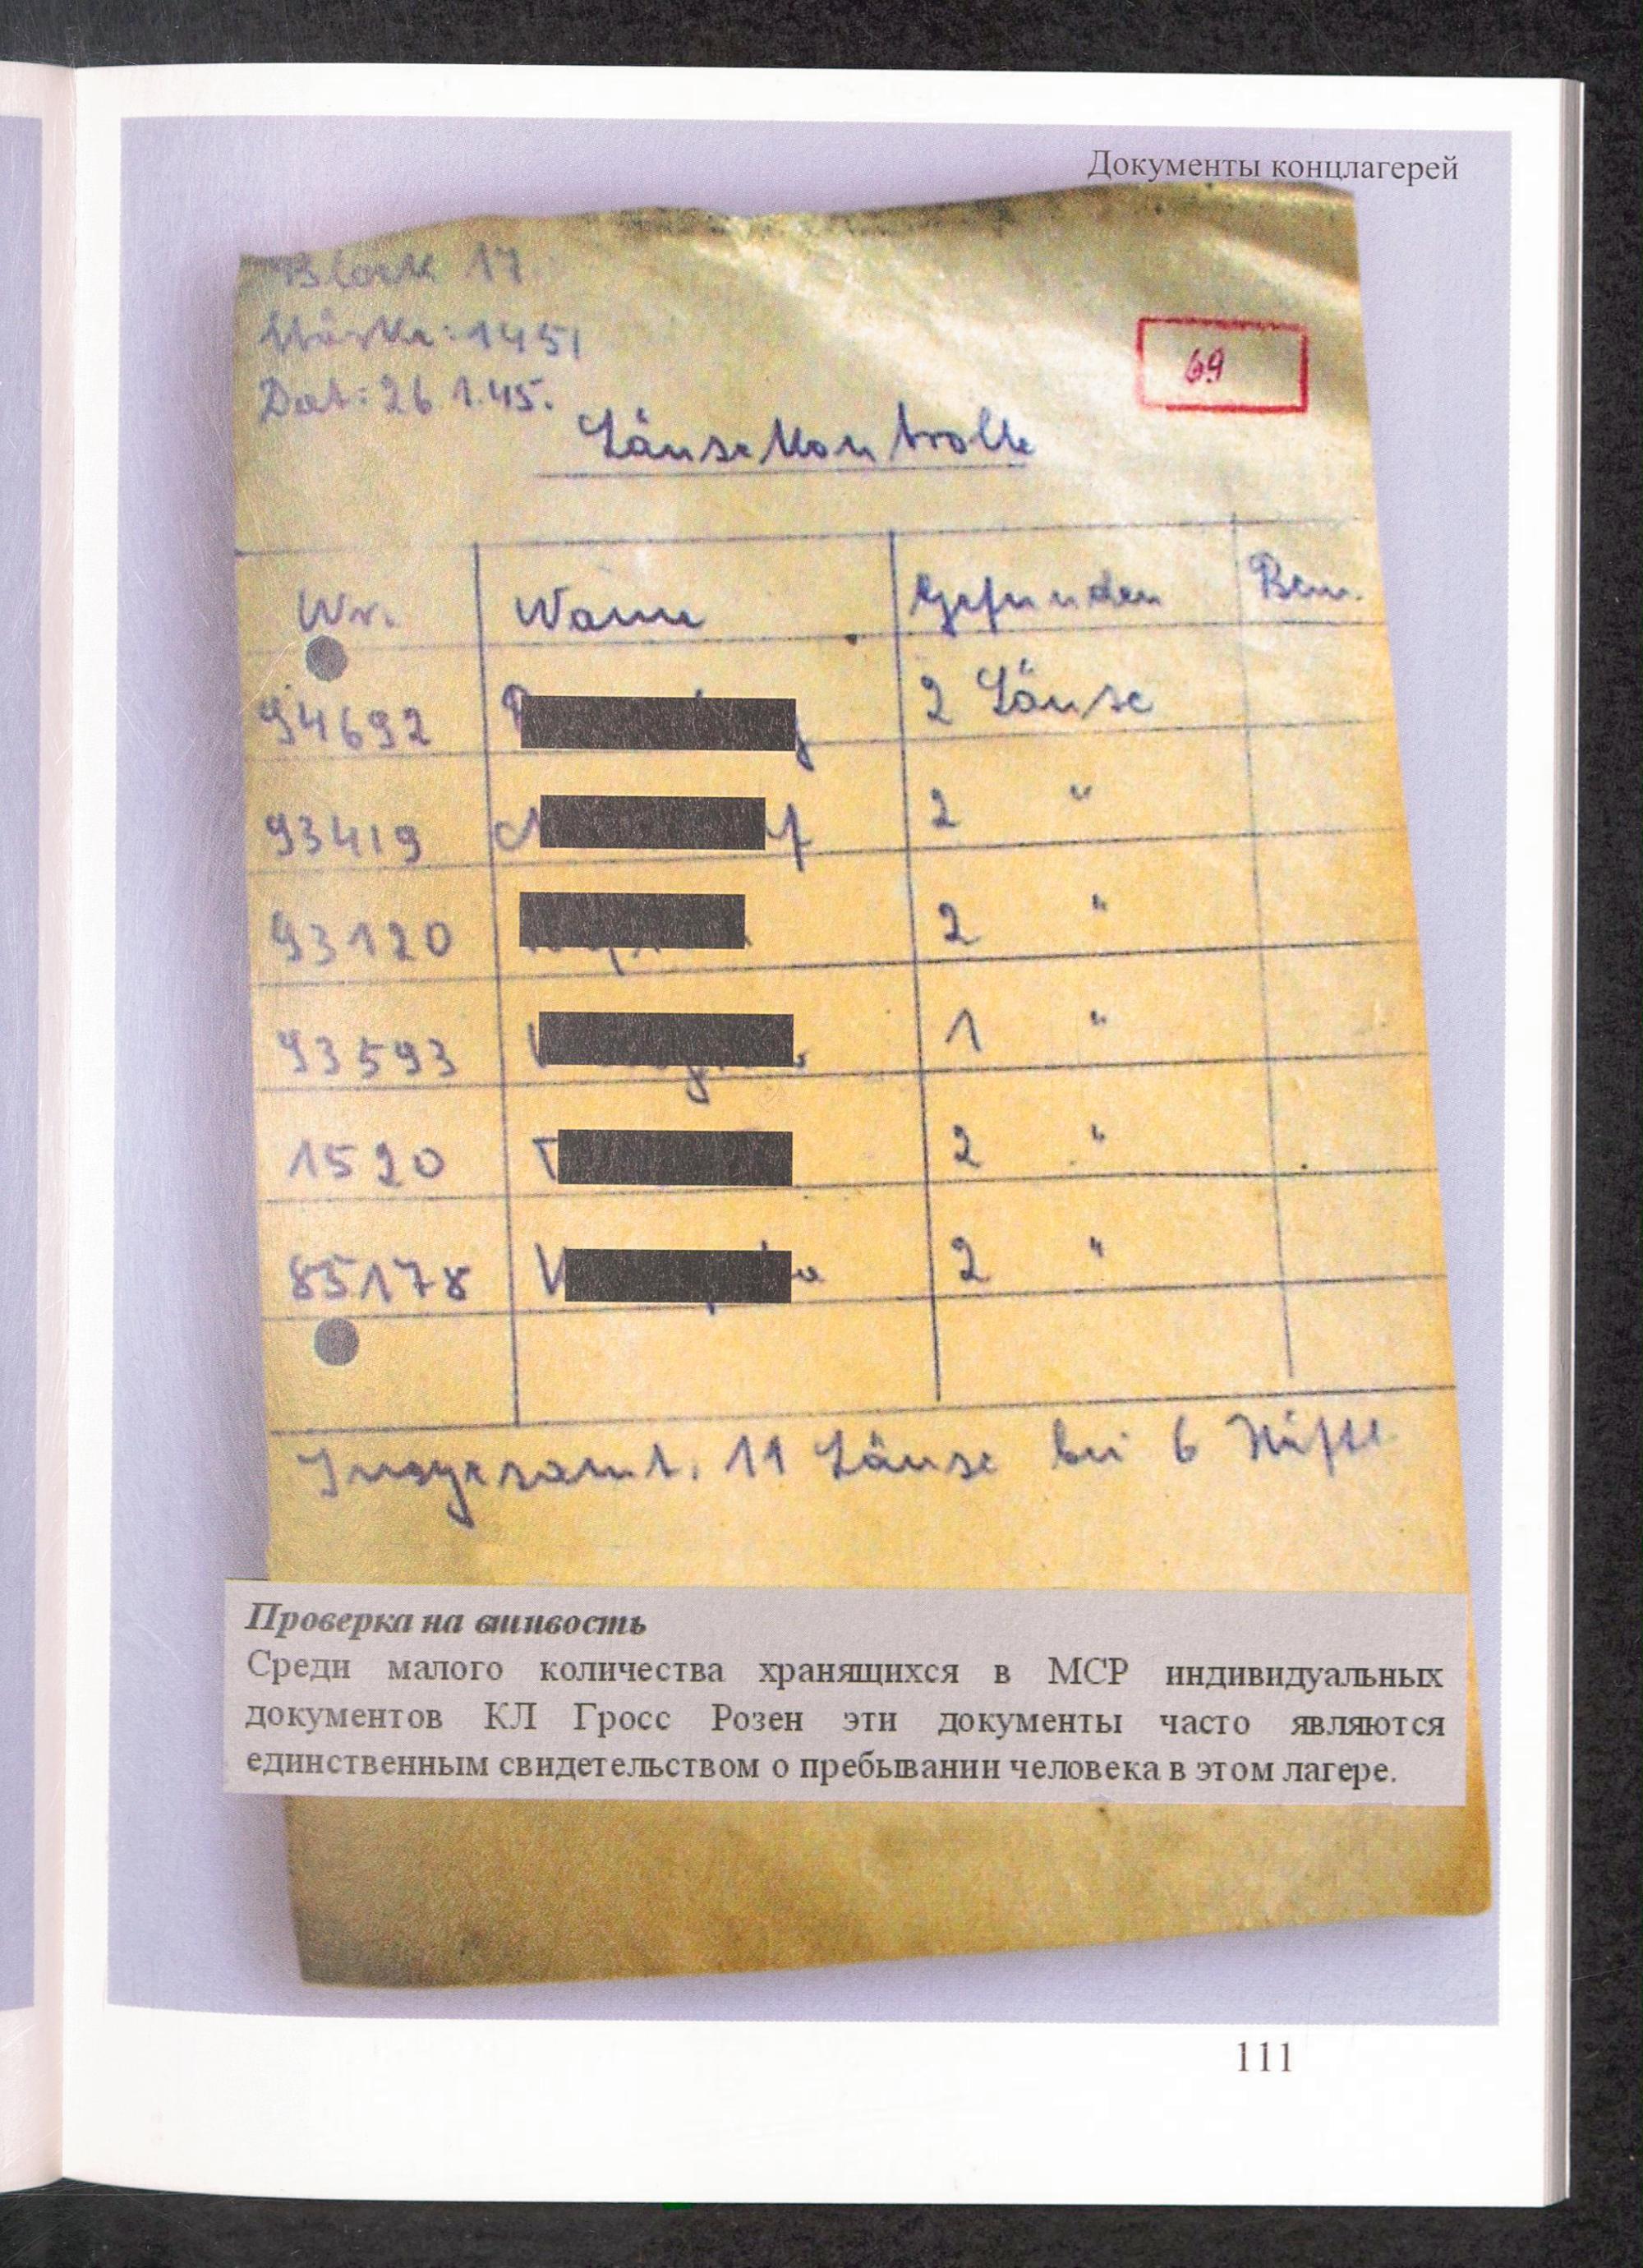 Документы концлагерей
Block 17
Stärke: 1451
Dat: 26.1.45.
69
Läusekontrolle
Nr. Name Gefunden Bem.
94692 2 Läuse
93419 2 "
93120 2 "
93593 1 "
1520 2 "
85178 2 "
Insgesamt: 11 Läuse bei 6 Häftl.
Проверка на вшивость
Среди малого количества хранящихся в МСР индивидуальных
документов КЛ Гросс Розен эти документы часто являются
единственным свидетельством о пребывании человека в этом лагере.
111